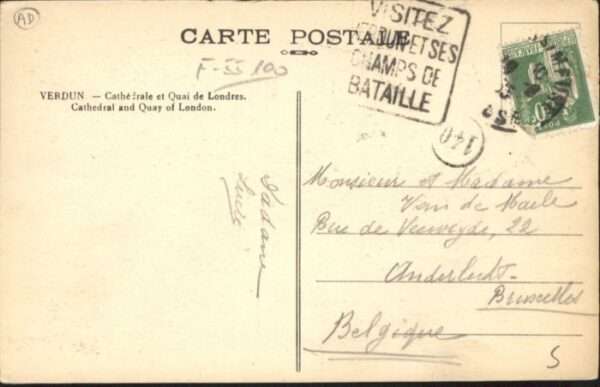 AD
CARTE POSTALE
VISITEZ
VERDUN ET SES
CHAMPS DE
BATAILLE
F-55 100
VERDUN. — Cathédrale et Quai de Londres.
Cathedral and Quay of London.
140
Monsieur et Madame
Van de Maele
Rue de 22
Anderlecht-
Bruxelles
Belgique
Lucie
5